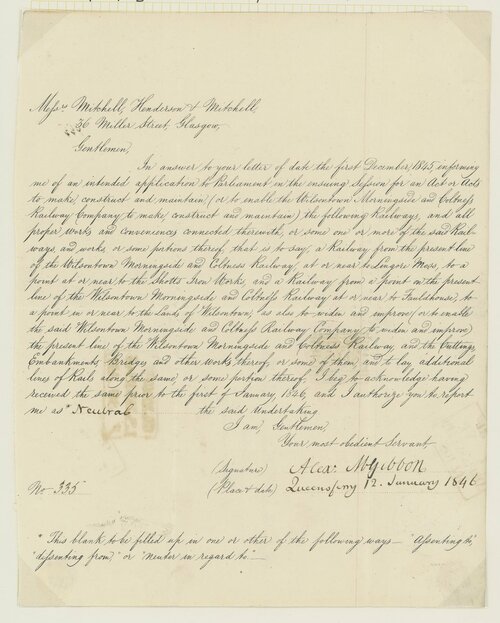 Messrs Mitchell, Henderson & Mitchell,
36 Miller Street, Glasgow.
Gentlemen,
In answer to your letter of date the first December, 1845, informing
me of an intended application to Parliament in the ensuing Session for an Act or Acts
to make, construct and maintain, (or to enable the Wilsontown Morningside and Coltness
Railway Company to make, construct and maintain) the following Railways, and all
proper works and conveniences connected therewith, or some one or more of the said Rail-
ways and works, or some portions thereof, that is to say, a Railway from the present line
of the Wilsontown Morningside and Coltness Railway, at or near to Lingore Moss, to a
point at or near to the Shotts Iron Works, and a Railway from a point on the present
line of the Wilsontown Morningside and Coltness Railway at or near to Fauldhouse, to
a point in or near to the Lands of Wilsontown; as also to widen and improve (or to enable
the said Wilsontown Morningside and Coltness Railway Company to widen and improve)
the present line of the Wilsontown Morningside and Coltness Railway, and the Cuttings
Embankments Bridges and other works thereof, or some of them, and to lay additional
lines of Rails along the same or some portion thereof, I beg to acknowledge having
received the same prior to the first of January, 1846, and I authorize you to report
me as * Neutral the said Undertaking
I am, Gentlemen,
Your most obedient Servant,
(Signature) Alexr. McGibbon
No 335 (Place & date) Queensferry 12. January 1846
* This blank to be filled up in one or other of the following ways — "Assenting to,"
"dissenting from," or "Neuter in regard to." —